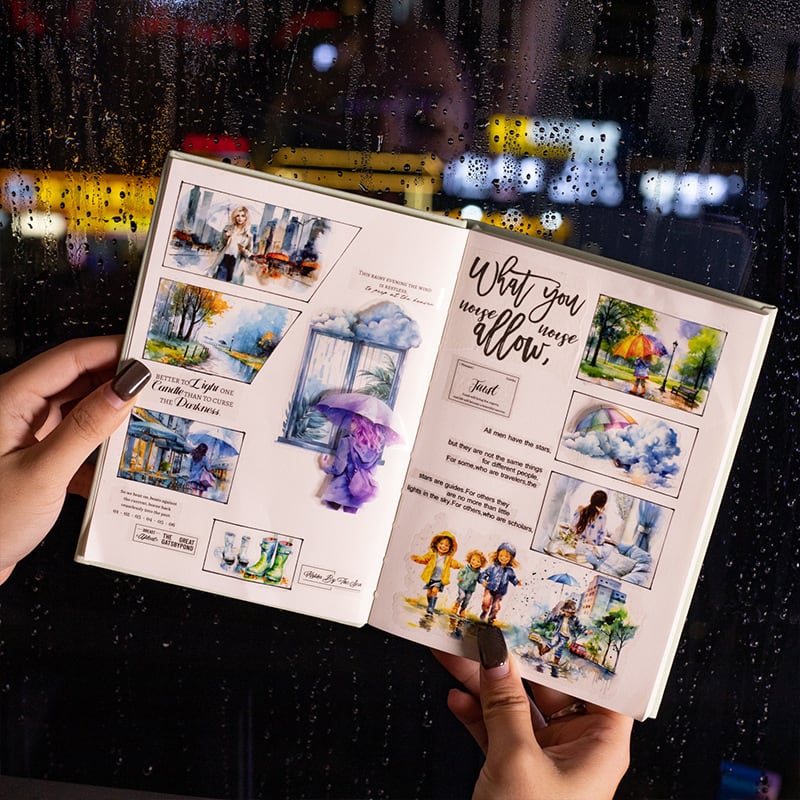 THIS RAINY EVENING THE WIND
IS RESTLESS,
BETTER TO Light ONE
Candle THAN TO CURSE
THE Darkness.
So we beat on, boats against
the current, borne back
ceaselessly into the past
01 · 02 · 03 · 04 · 05 · 06
THE GREAT
GATSBYPOND
By The Sea
What you
noise noise
allow,
Faust
All men have the stars,
but they are not the same things
for different people.
For some,who are travelers,the
stars are guides.For others they
are no more than little
lights in the sky.For others,who are scholars,